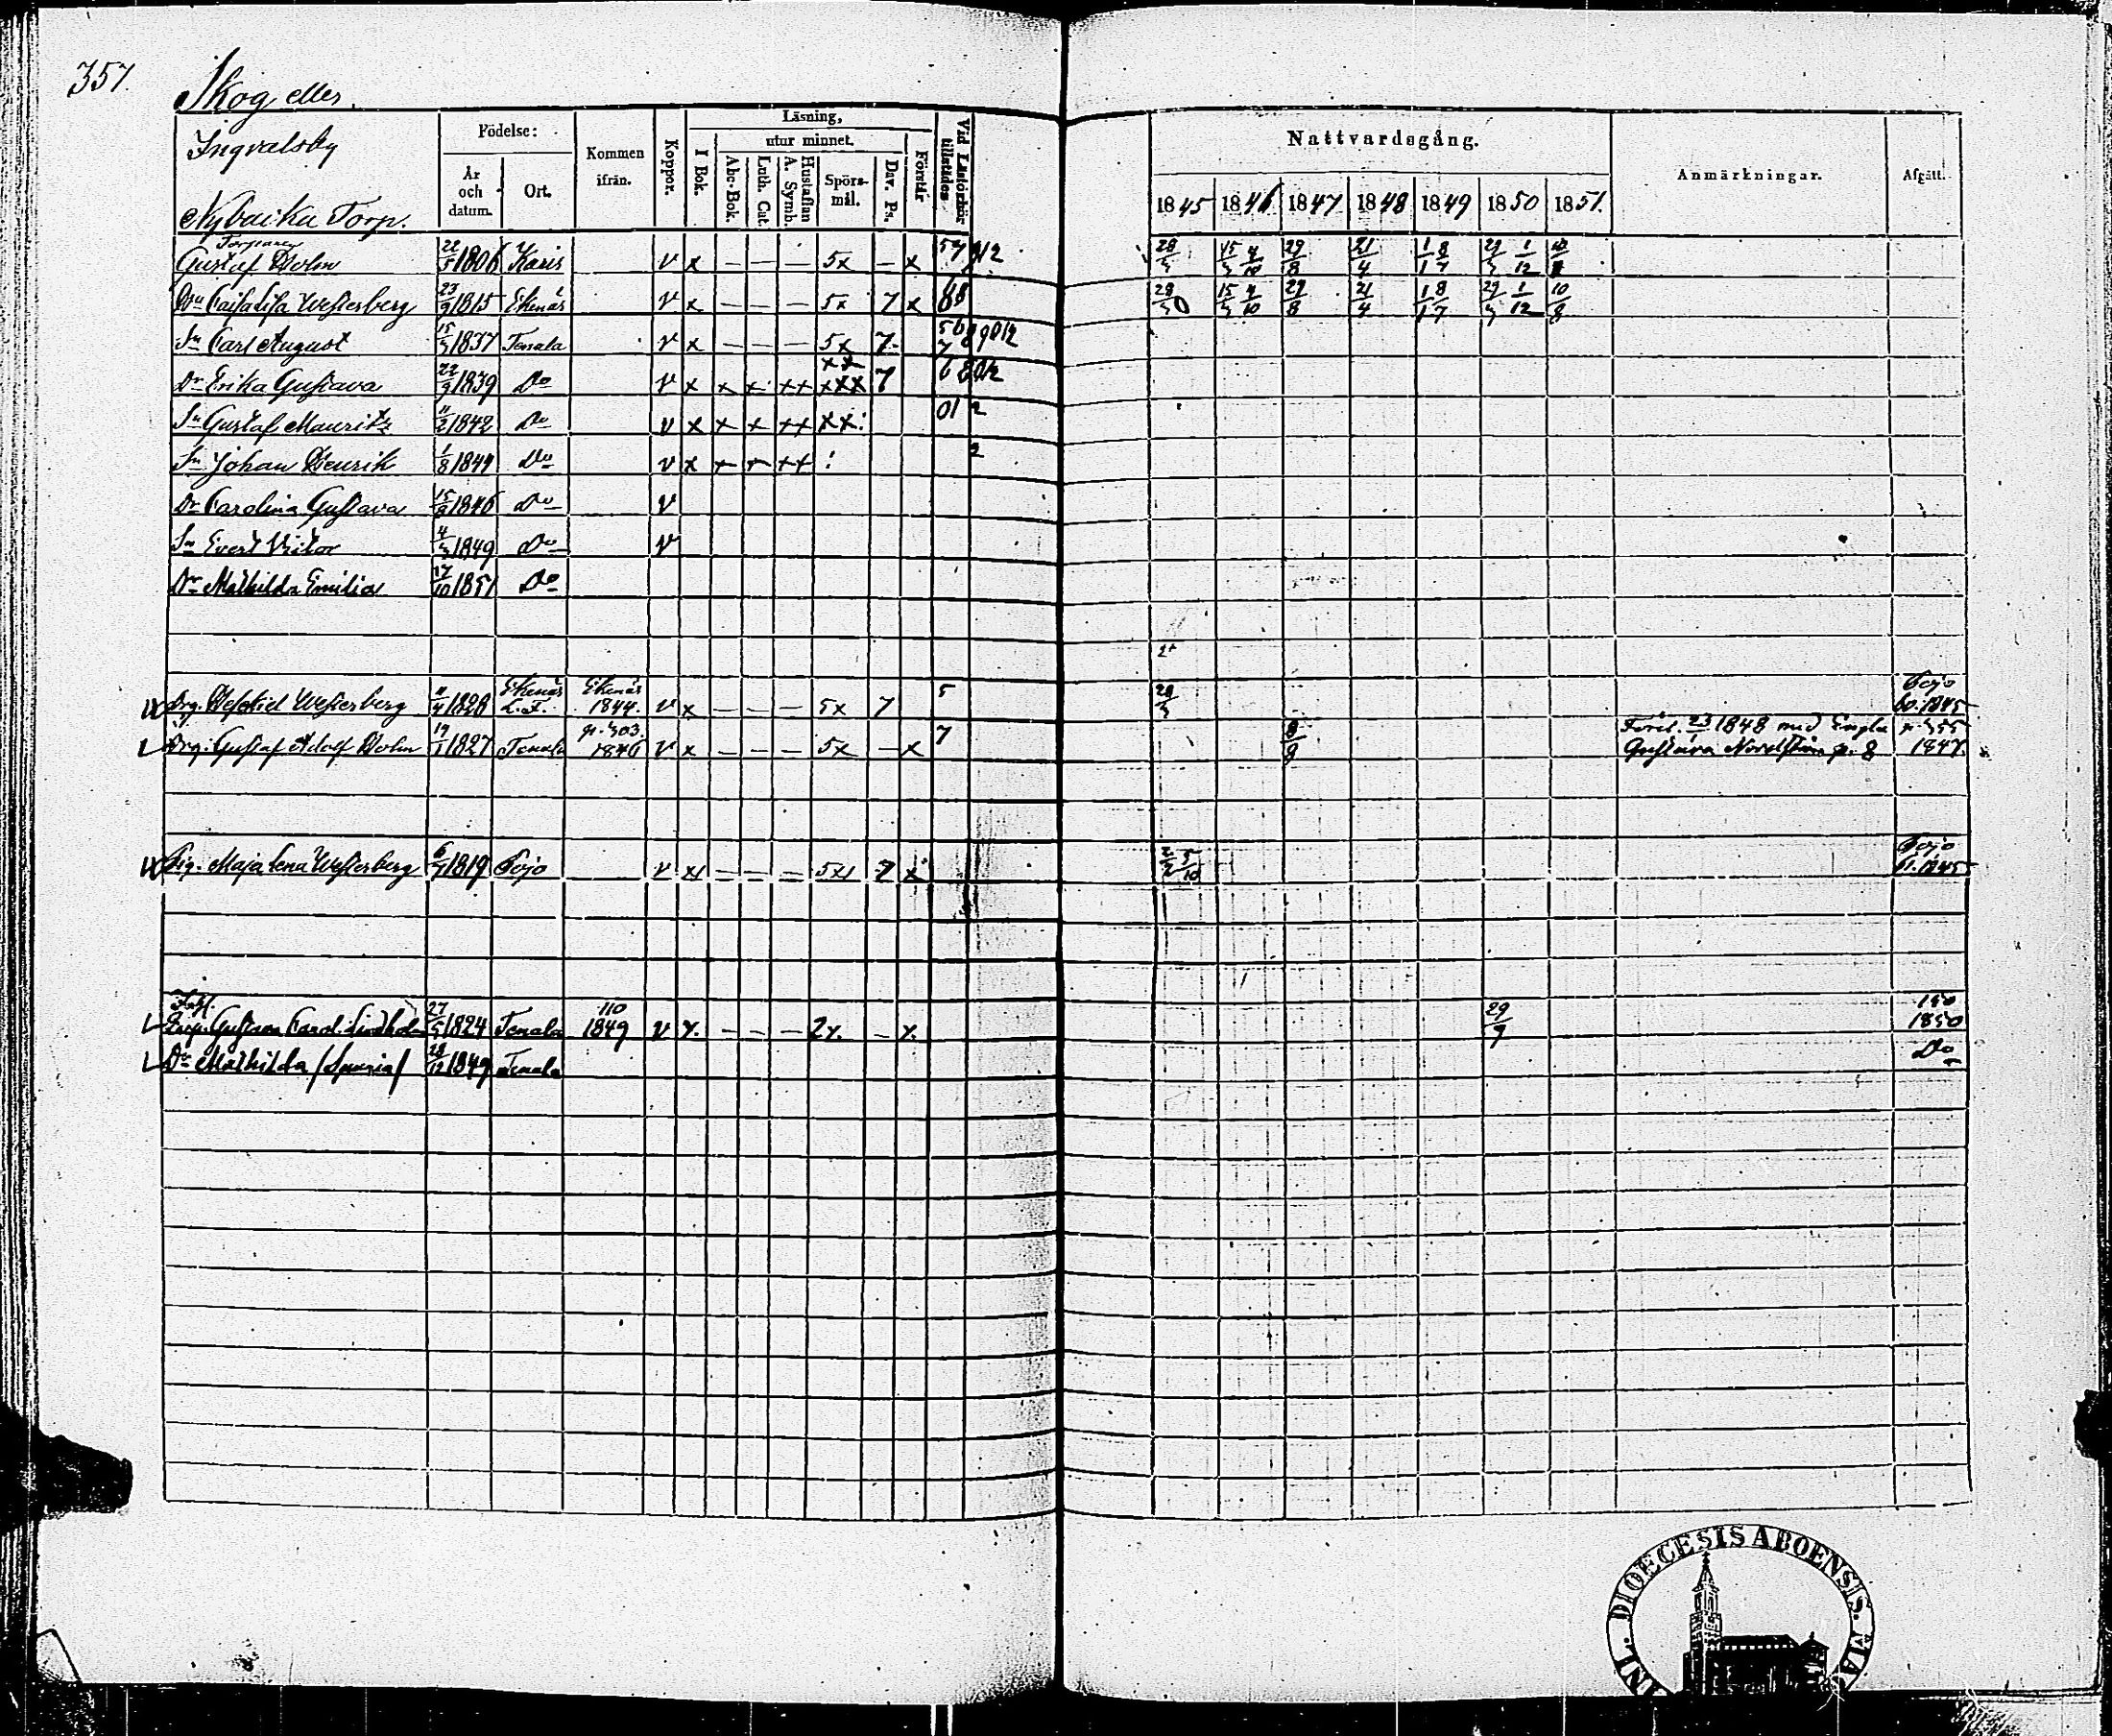 357.
Skog eller
Ingvalsby
Nybacka Torp.
Födelse:
År och datum.
Ort.
Kommen ifrån.
Koppor.
Läsning,
I Bok.
utur minnet.
Abc-Bok.
Luth. Cat.
Hustaflan A. Symb.
Spörsmål.
Dav. Ps.
Förstår
Vid Läsförhör tillstädes
Nattvardsgång.
1845 1846 1847 1848 1849 1850 1851.
Anmärkningar.
Afgått.
Torparen
Gustaf Holm 22/5 1806 Karis v x — — — 5x — x 29/8 21/4 1/1 8/7 1/12
Hu Caisa Lisa Westerberg 23/9 1815 Ekenäs v x — — — 5x 7 x 29/8 21/4 1/1 8/7 1/12 10/8
Sn Carl August 1837 Tenala v x — — — 5x 7
Dr Erika Gustava 22/9 1839 Do v x x x xx xxx 7
Sn Gustaf Mauritz 11/2 1842 Do v x x x xx xx
Sn Johan Henrik 1/8 1844 Do v x x x xx
Dr Carolina Gustava 1846 Do v
Sn Evert Victor 1849 Do v
Dr Mathilda Emilia 17/10 1851 Do
Drg. Heskiel Westerberg 1828 Ekenäs L.F. Ekenäs 1844. v x — — — 5x 7 5 Pojo 1845
Drg. Gustaf Adolf Holm 19/1 1827 Tenala 1846 v x — — — 5x — x 7 8/8 1848 med Engla
Gustava Nordström p. 8 1847.
Pig. Maja Lena Westerberg 1819 Pojo v x — — — 5x 7 x Pojo 1845
Gustava Carol. Lindholm 27/5 1824 Tenala 110 1849 v x — — — 2x — x 29/9 1850
Dr Mathilda /Spuria/ 28/12 1849 Tenala Do
DIOECESIS ABOENSIS.